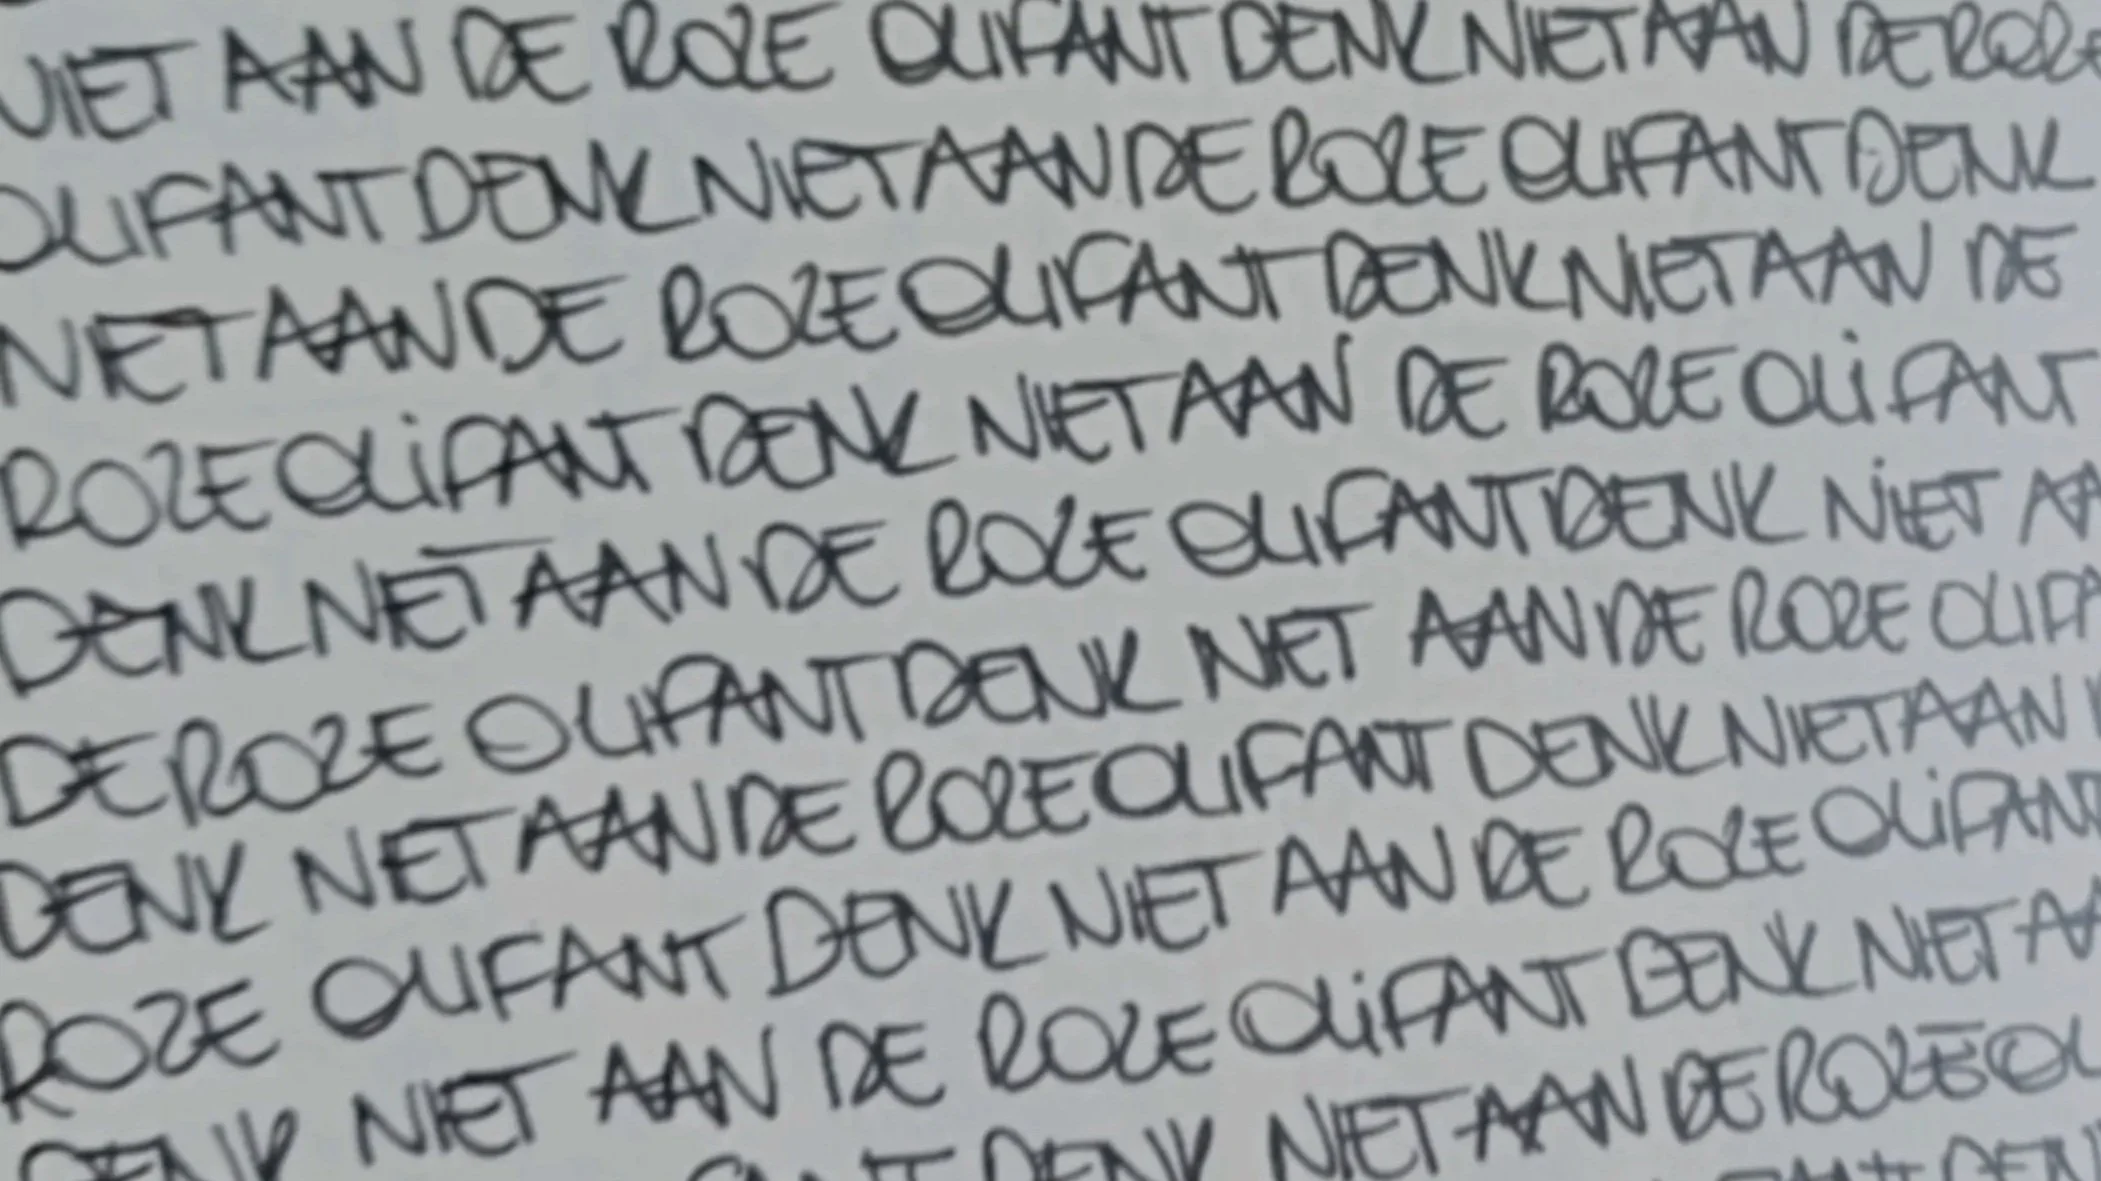 NIET AAN DE ROZE OLIFANT DENK NIET AAN DE ROZE
OLIFANT DENK NIET AAN DE ROZE OLIFANT DENK
NIET AAN DE ROZE OLIFANT DENK NIET AAN DE
ROZE OLIFANT DENK NIET AAN DE ROZE OLIFANT
DENK NIET AAN DE ROZE OLIFANT DENK NIET AA
DE ROZE OLIFANT DENK NIET AAN DE ROZE OLIFA
DENK NIET AAN DE ROZE OLIFANT DENK NIET AAN
ROZE OLIFANT DENK NIET AAN DE ROZE OLIFANT
DENK NIET AAN DE ROZE OLIFANT DENK NIET AA
FANT DENK NIET AAN DE ROZE OL
DEN